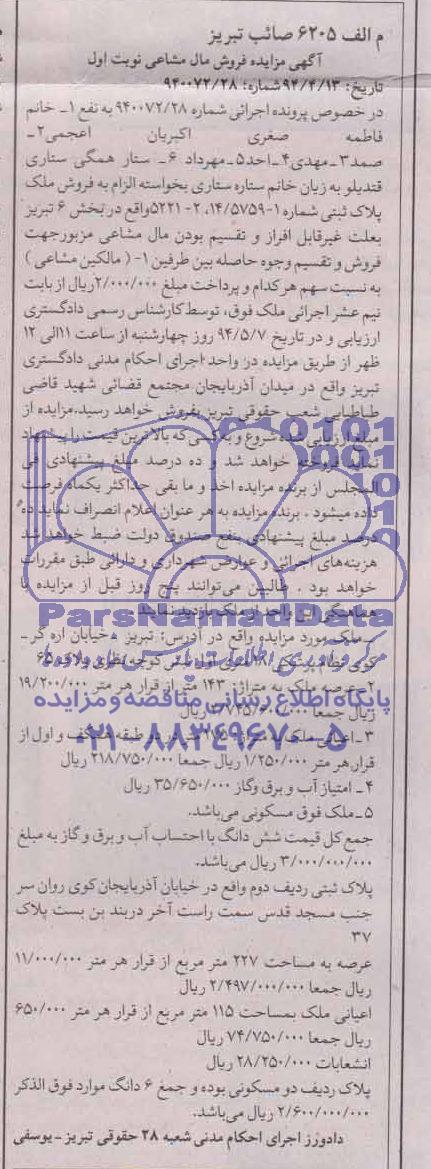 م الف ۶۲۰۵ صائب تبریز
آگهی مزایده فروش مال مشاعی نوبت اول
تاریخ: ۹۴/۴/۱۳ شماره: ۹۴۰۰۷۲/۲۸
در خصوص پرونده اجرائی شماره ۹۴۰۰۷۲/۲۸ به نفع ۱ـ خانم
فاطمه صغری اکبریان اعجمی۲ـ
صمد۳ـ مهدی۴ـ احد۵ـ مهرداد ۶ـ ستار همگی ستاری
قندیلو به زیان خانم ستاره ستاری بخواسته الزام به فروش ملک
پلاک ثبتی شماره ۱-۱۴/۵۷۵۹، ۲- ۵۲۲۱واقع در بخش ۶ تبریز
بعلت غیرقابل افراز و تقسیم بودن مال مشاعی مزبورجهت
فروش و تقسیم وجوه حاصله بین طرفین ۱- ( مالکین مشاعی )
به نسبت سهم هر کدام و پرداخت مبلغ ۲/۰۰۰/۰۰۰ریال از بابت
نیم عشر اجرائی ملک فوق، توسط کارشناس رسمی دادگستری
ارزیابی و در تاریخ ۹۴/۵/۷ روز چهارشنبه از ساعت ۱۱الی ۱۲
ظهر از طریق مزایده در واحد اجرای احکام مدنی دادگستری
تبریز واقع در میدان آذربایجان مجتمع قضائی شهید قاضی
طباطبایی شعب حقوقی تبریز بفروش خواهد رسید.مزایده از
مبلغ ارزیابی شده شروع و به کسی که بالاترین قیمت را پیشنهاد
نماید فروخته خواهد شد و ده درصد مبلغ پیشنهادی فی
المجلس از برنده مزایده اخذ و ما بقی حداکثر یکماه فرصت
داده میشود . برنده مزایده به هر عنوان اعلام انصراف نماید ده
درصد مبلغ پیشنهادی بنفع صندوق دولت ضبط خواهد شد
هزینه‌های اجرائی و عوارض شهرداری و دارائی طبق مقررات
خواهد بود . طالبین می‌توانند پنج روز قبل از مزایده با
هماهنگی این واحد از ملک بازدید نمایند
ـ ملک مورد مزایده واقع در آدرس: تبریز ـ خیابان اره گر ـ
کوی ۱۸ متری اول کوچه نظری پلاک ۶۵
۲ـ عرصه ملک به متراژ: ۱۴۳ متر از قرار هر متر ۱۹/۲۰۰/۰۰۰
ریال جمعا ریال
۳ـ اعیانی ملک ۱۷۵ در دو طبقه همکف و اول از
قرار هر متر ۱/۲۵۰/۰۰۰ ریال جمعا ۲۱۸/۷۵۰/۰۰۰ ریال
۴ـ امتیاز آب و برق وگاز ۳۵/۶۵۰/۰۰۰ ریال
۵ـ ملک فوق مسکونی می‌باشد.
جمع کل قیمت شش دانگ با احتساب آب و برق و گاز به مبلغ
۳/۰۰۰/۰۰۰/۰۰۰ ریال می‌باشد.
پلاک ثبتی ردیف دوم واقع در خیابان آذربایجان کوی روان سر
جنب مسجد قدس سمت راست آخر دربند بن بست پلاک
۳۷
عرصه به مساحت ۲۲۷ متر مربع از قرار هر متر ۱۱/۰۰۰/۰۰۰
ریال جمعا ۲/۴۹۷/۰۰۰/۰۰۰ ریال
اعیانی ملک بمساحت ۱۱۵ متر مربع از قرار هر متر ۶۵۰/۰۰۰
ریال جمعا ۷۴/۷۵۰/۰۰۰ ریال
انشعابات ۲۸/۲۵۰/۰۰۰ ریال
پلاک ردیف دو مسکونی بوده و جمع ۶ دانگ موارد فوق الذکر
۲/۶۰۰/۰۰۰/۰۰۰ ریال می‌باشد.
دادورز اجرای احکام مدنی شعبه ۲۸ حقوقی تبریز ـ یوسفی
ParsNamadData
پایگاه اطلاع رسانی مناقصه و مزایده
۰۲۱-۸۸۳۴۹۶۷۰-۵